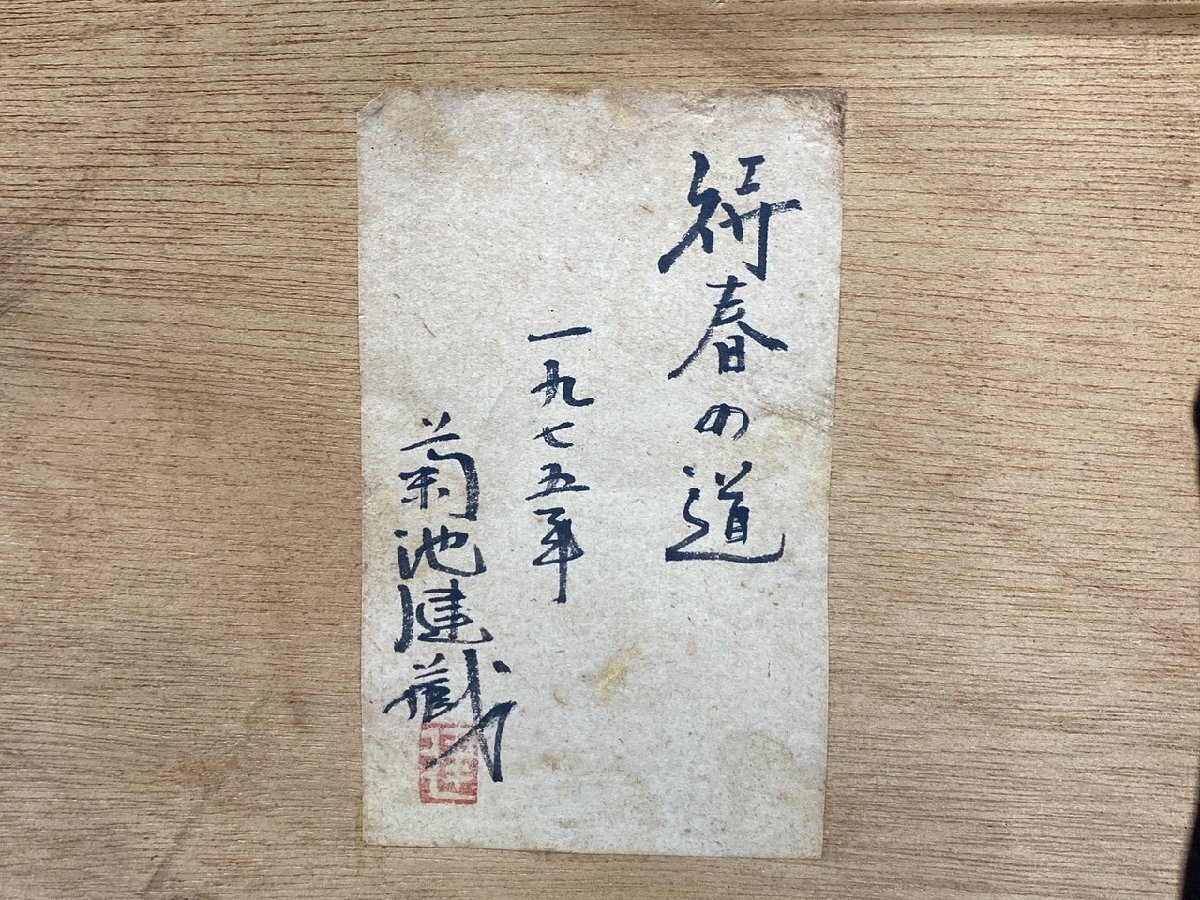 研春の道
一九七五年
菊池建蔵